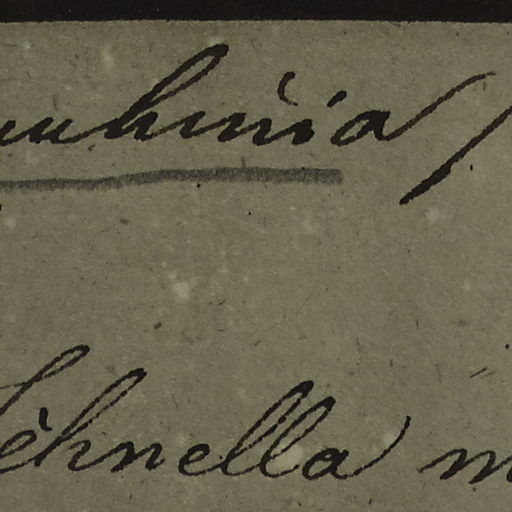 auhinia
Schnella